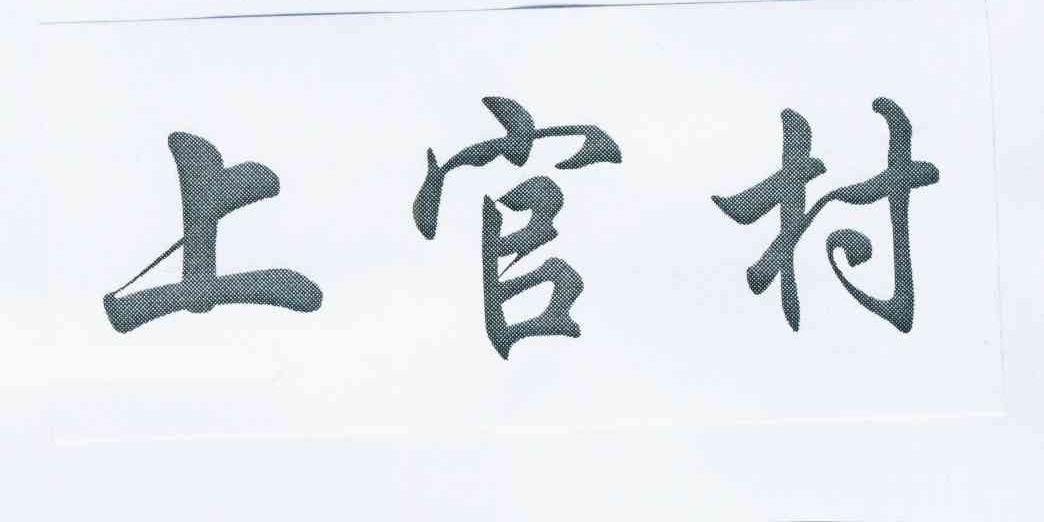 上官村